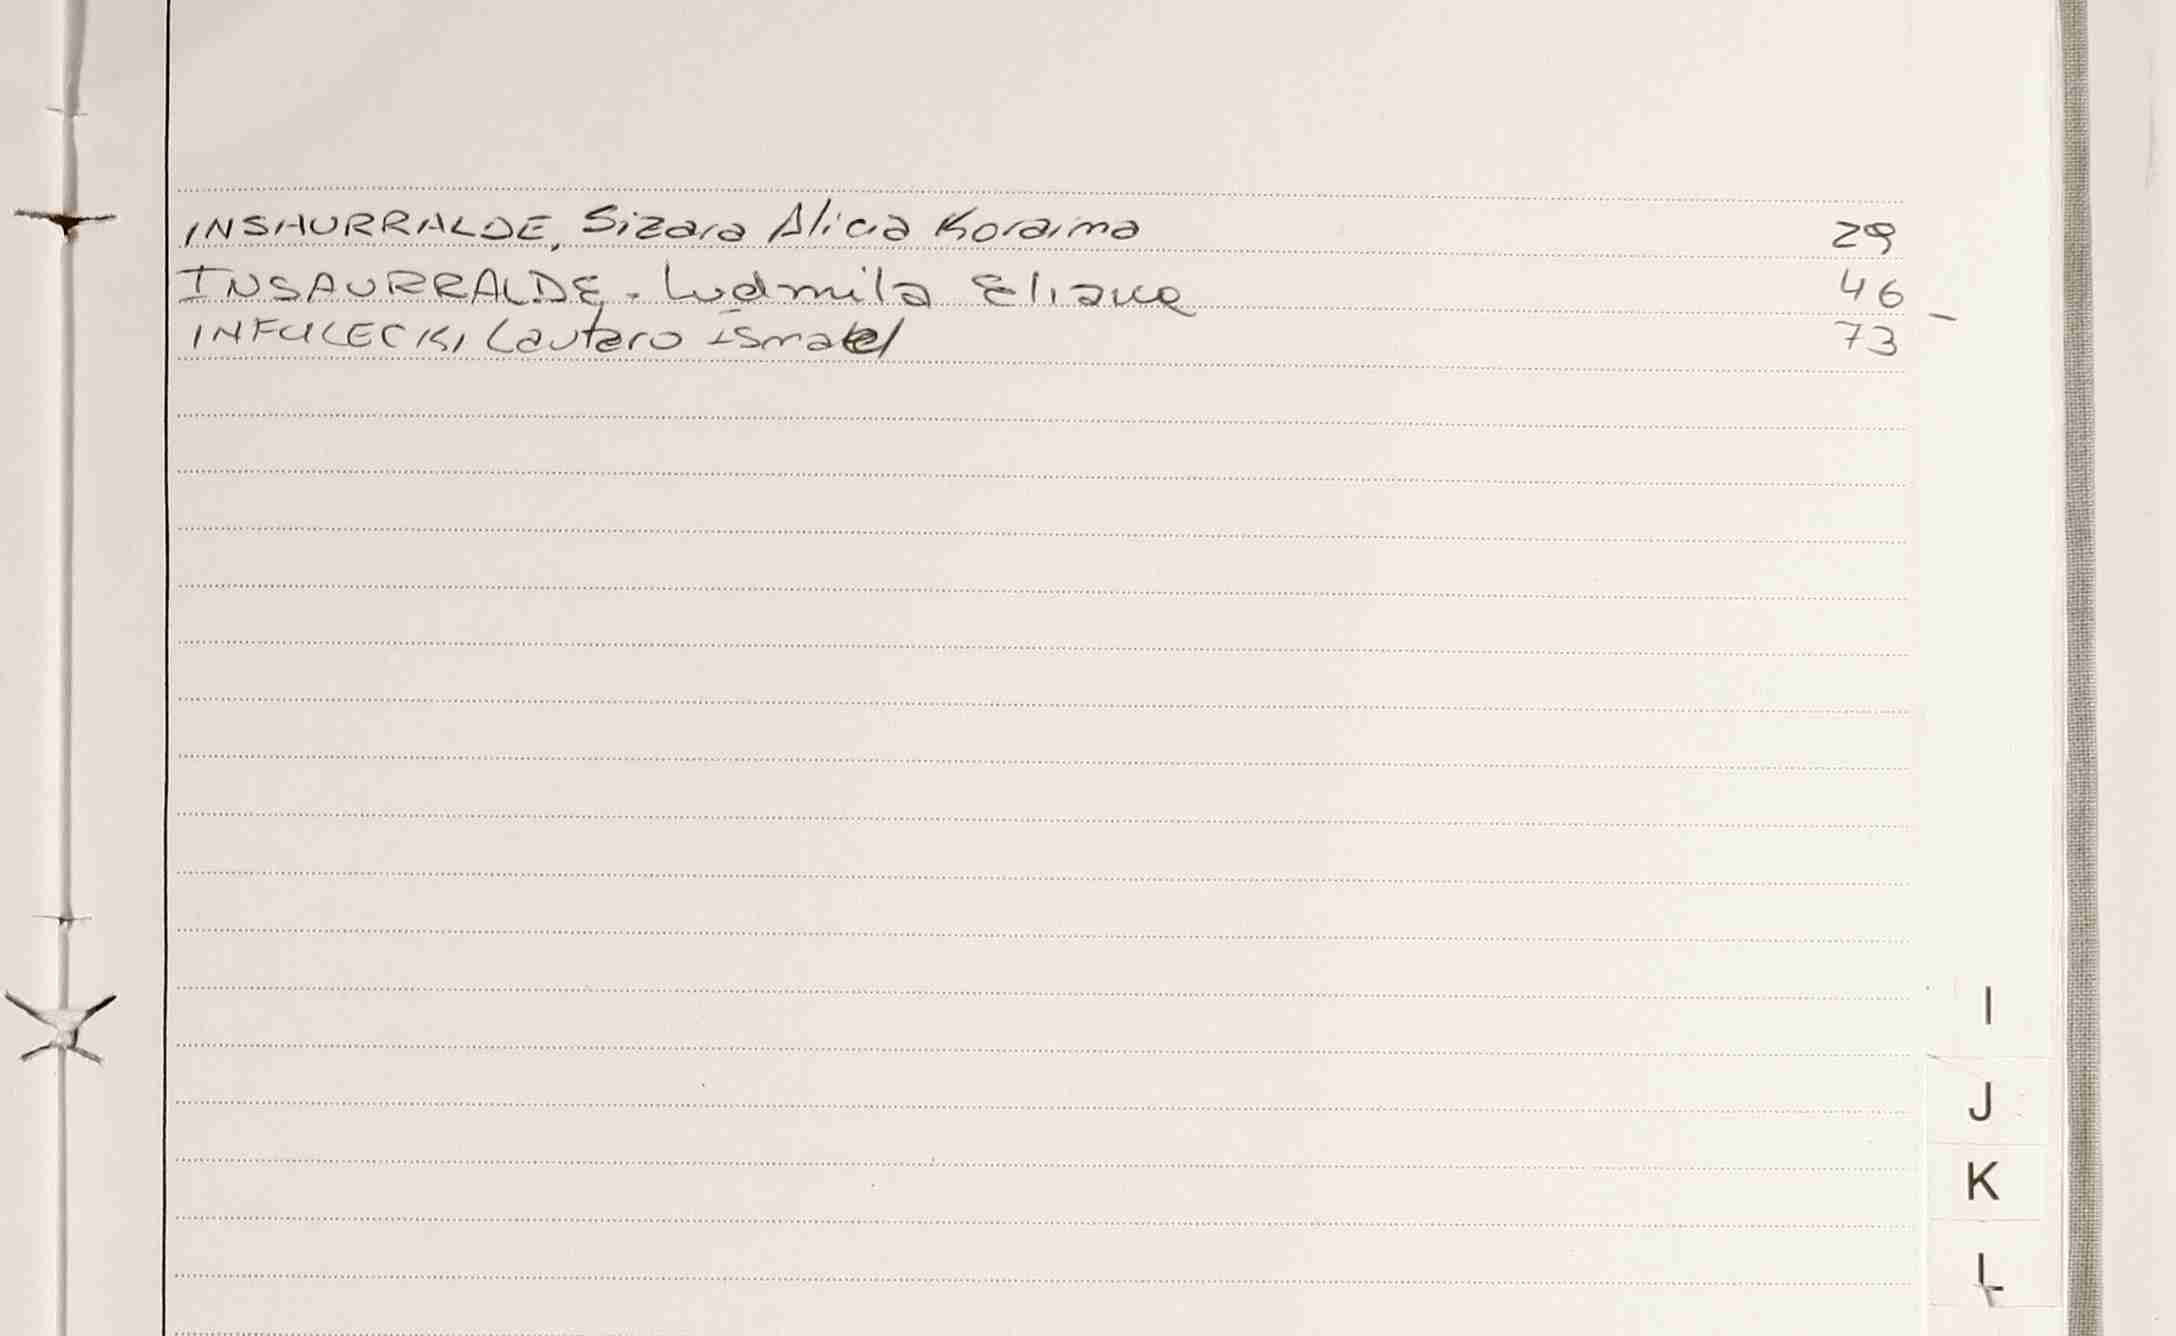 INSAURRALDE, Sizara Alicia Koraima 29
INSAURRALDE. Ludmila Eliana 46
INFULECKI, Lautaro Ismael 73
I
J
K
L